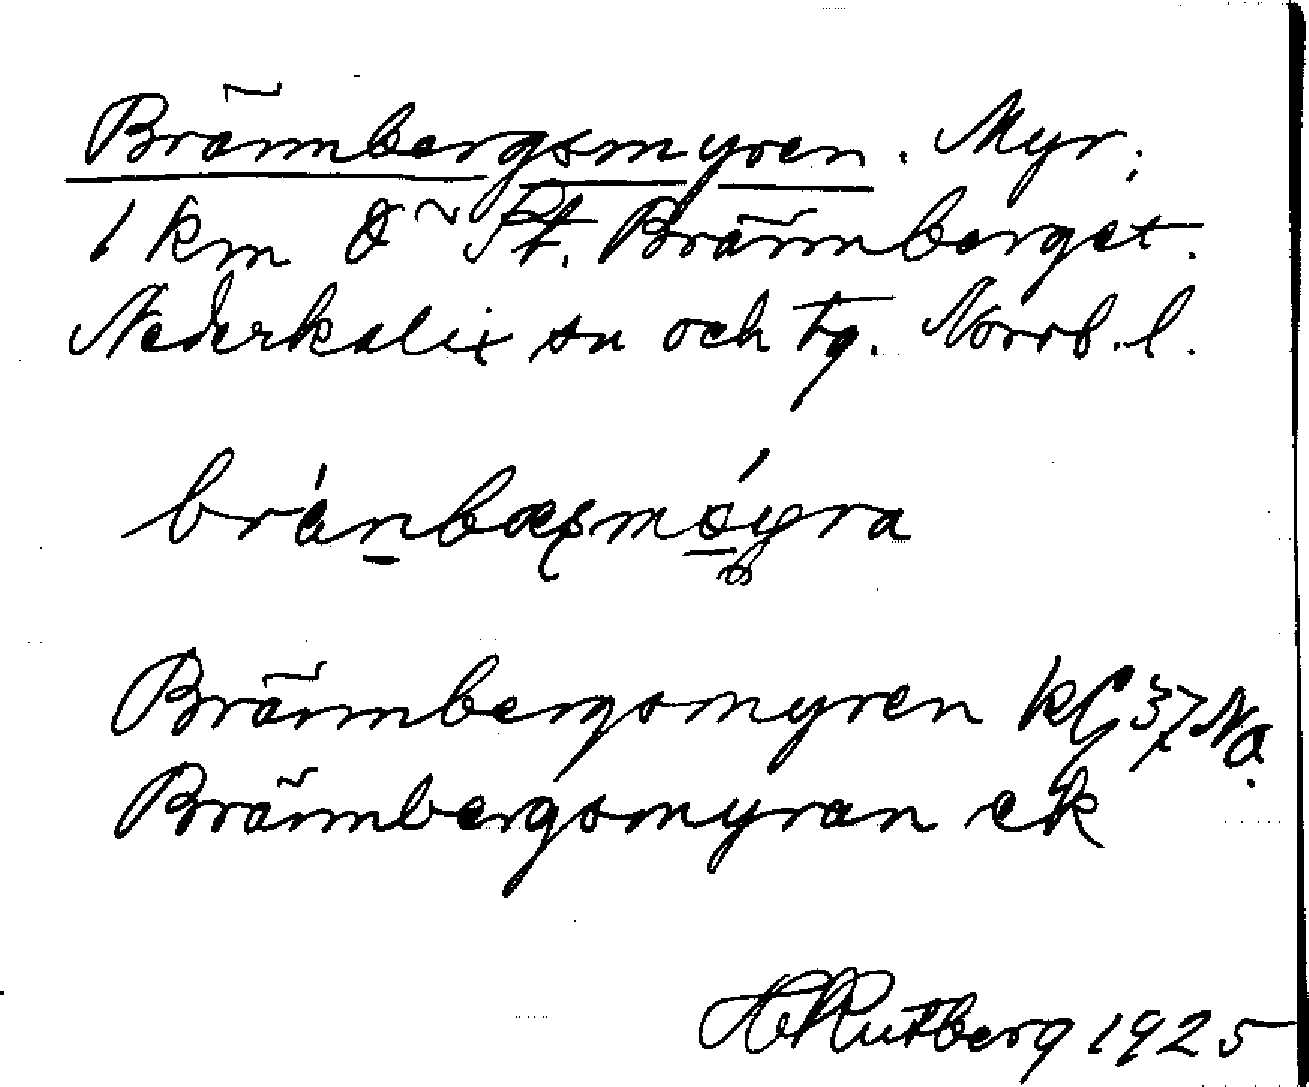 Brännbergsmyren. Myr.
1 km Ö St. Brännberget.
Nederkalix sn och tg. Norrb. l.
Brännbergsmyren kG 37 NO.
Brännbergsmyran ek
H Rutberg 1925